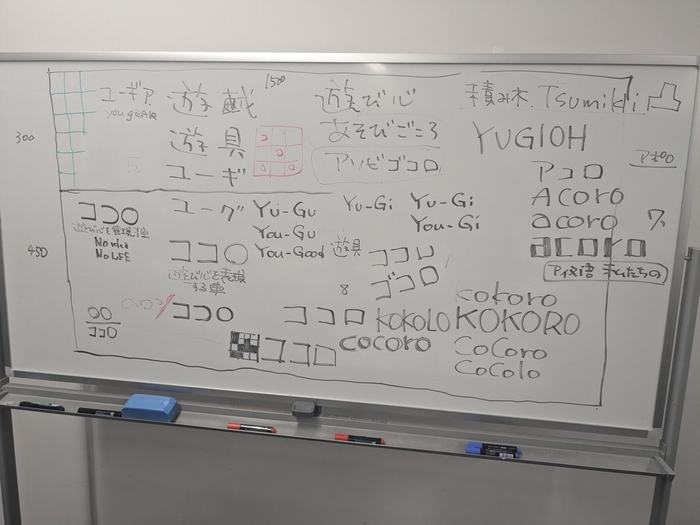 1500
300
450
ユーギア
you geala
遊戯
遊具
ユーギ
遊び心
あそびごころ
アソビゴコロ
積み木 Tsumiki
YUGIOH
アコロ
アポロ
Acoro
acoro
acoro
アイヌ語 私たちの
ココ〇
No idea
No LIFE
〇〇
ココ〇
ユーグ
Yu-Gu
Yu-Gi
Yu-Gi
You-Gu
You-Gi
ココ〇
You-Good
遊具
ココロ
ゴコロ
遊び心を表現
する車
8
ココ〇
ココロ
KOKOLO
kokoro
KOKORO
ココロ
cocoro
CoCoro
CoColo